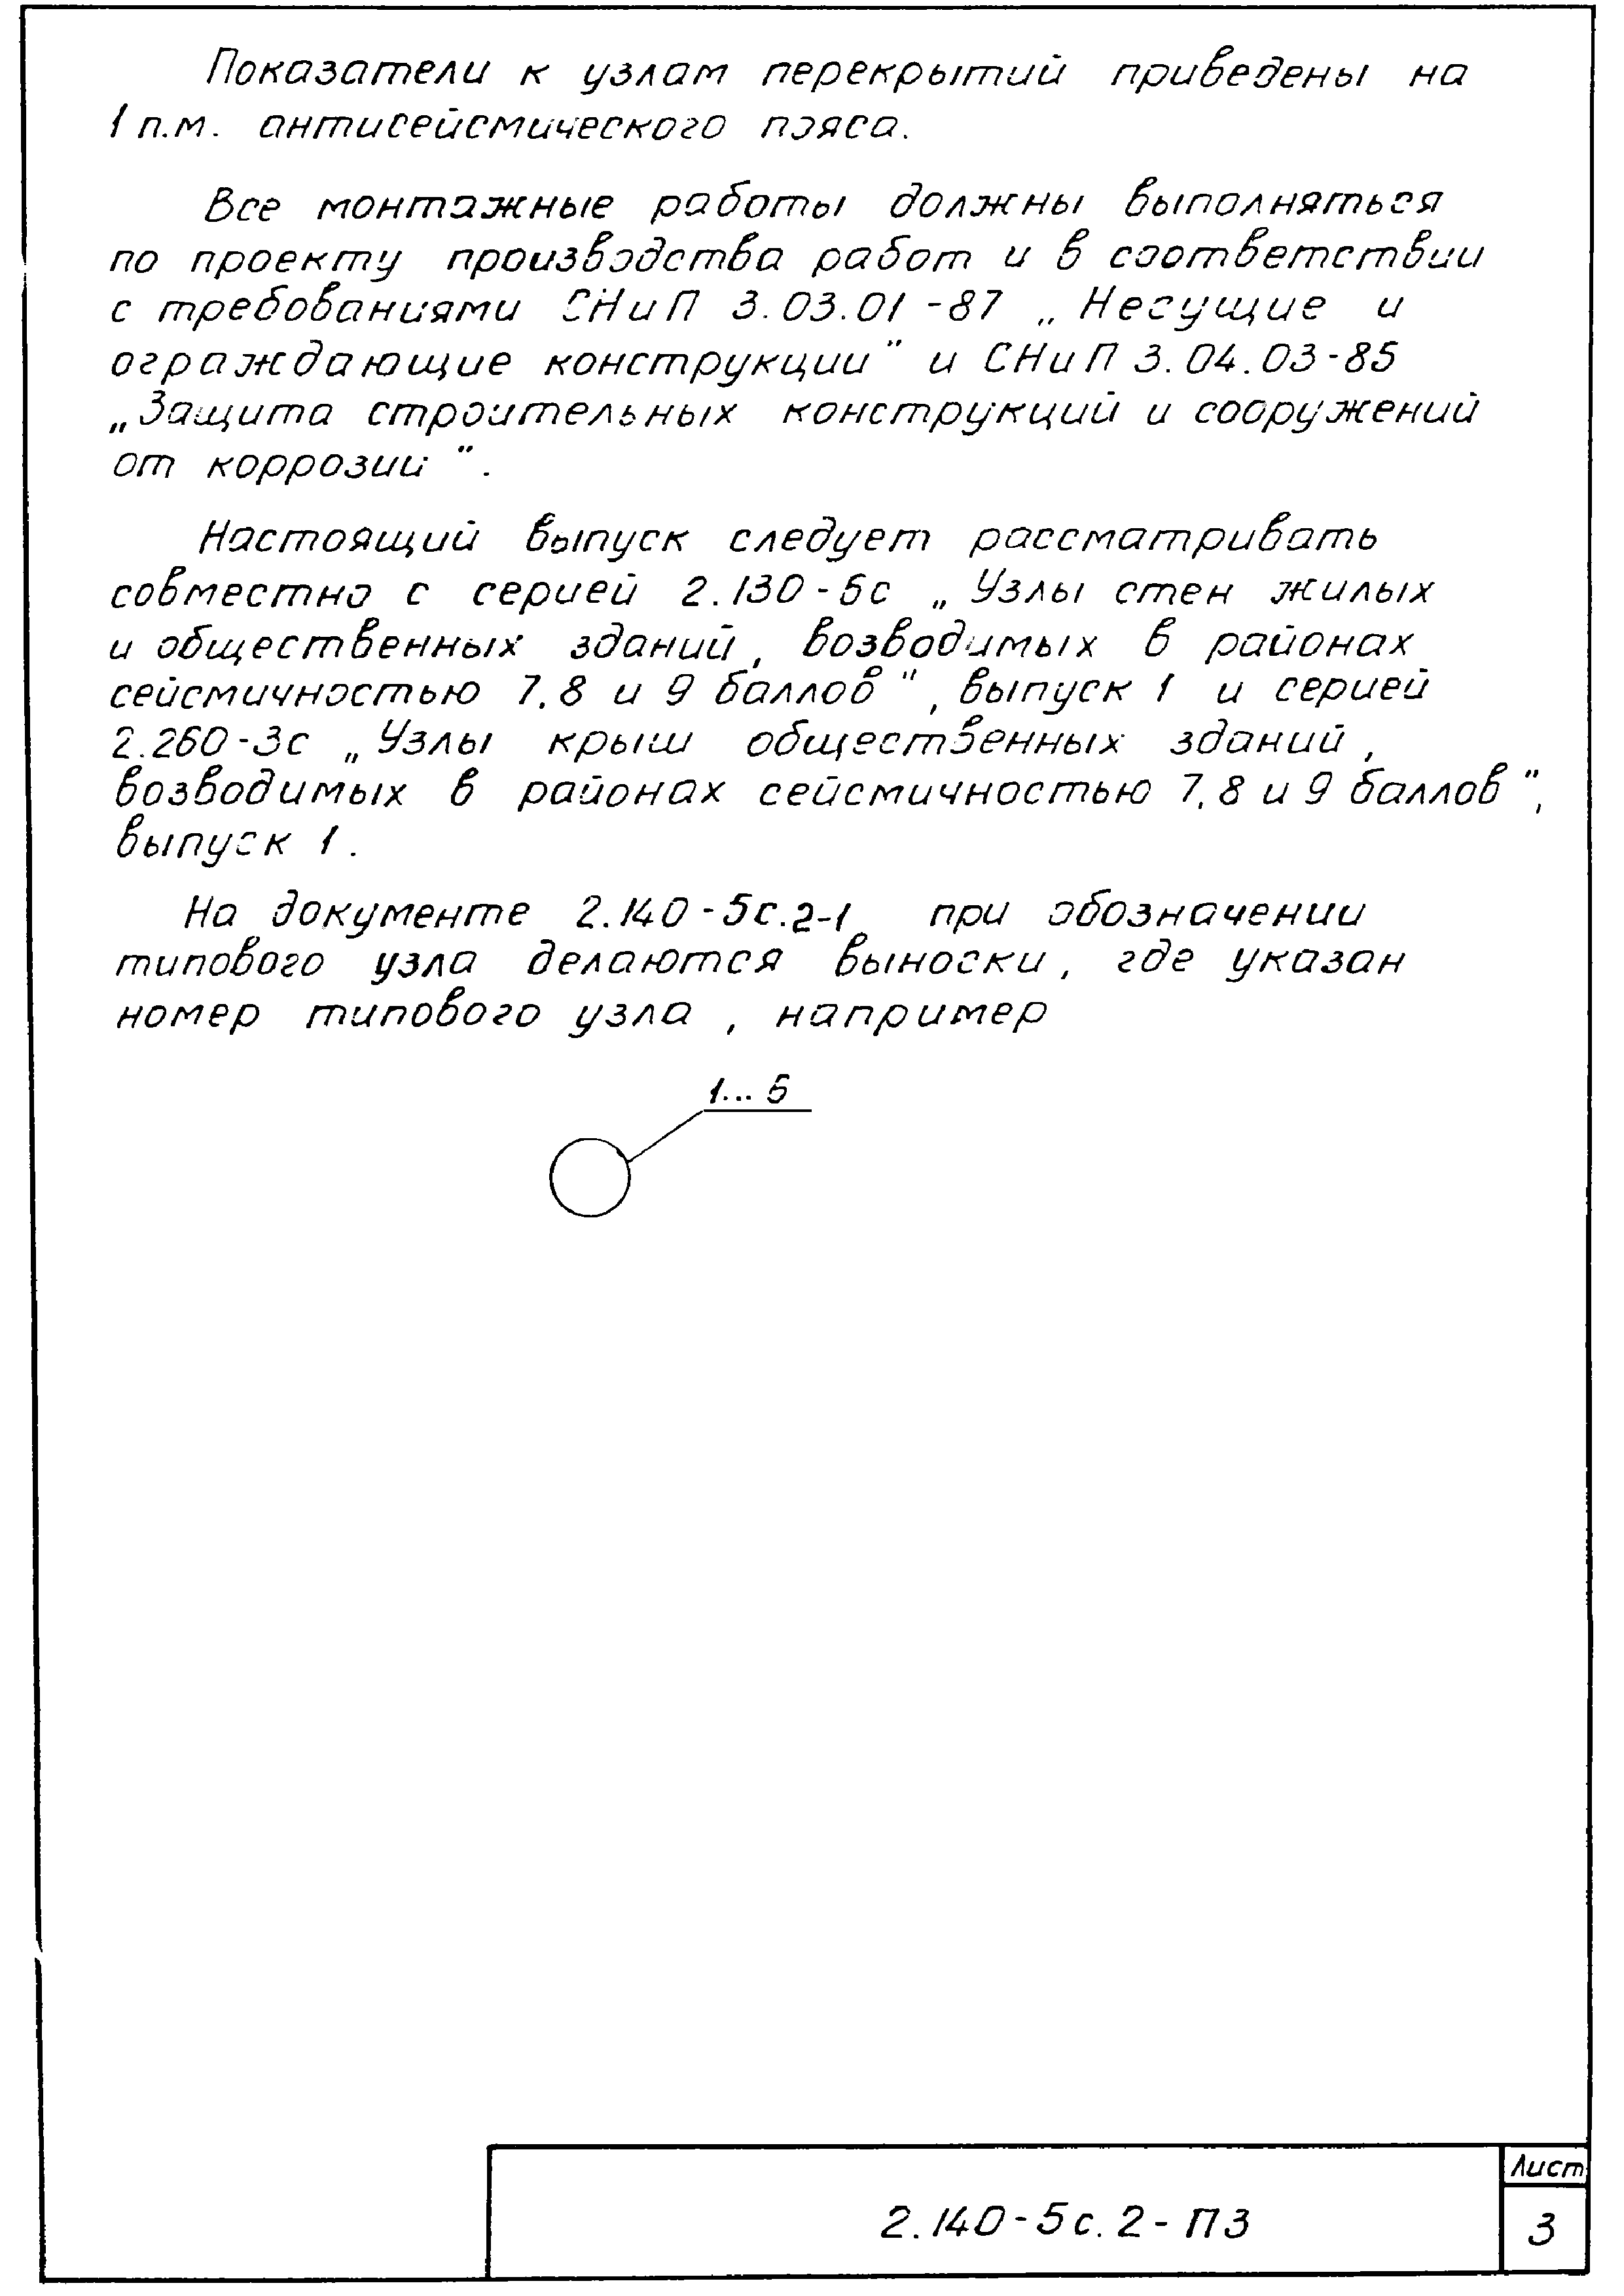 Показатели к узлам перекрытий приведены на
1 п.м. антисейсмического пояса.
Все монтажные работы должны выполняться
по проекту производства работ и в соответствии
с требованиями СНиП 3.03.01-87 „Несущие и
ограждающие конструкции" и СНиП 3.04.03-85
„Защита строительных конструкций и сооружений
от коррозии".
Настоящий выпуск следует рассматривать
совместно с серией 2.130-6с „Узлы стен жилых
и общественных зданий, возводимых в районах
сейсмичностью 7,8 и 9 баллов", выпуск 1 и серией
2.260-3с „Узлы крыш общественных зданий,
возводимых в районах сейсмичностью 7,8 и 9 баллов",
выпуск 1.
На документе 2.140-5с.2-1 при обозначении
типового узла делаются выноски, где указан
номер типового узла, например
1... 5
Лист
2.140-5с.2-ПЗ
3